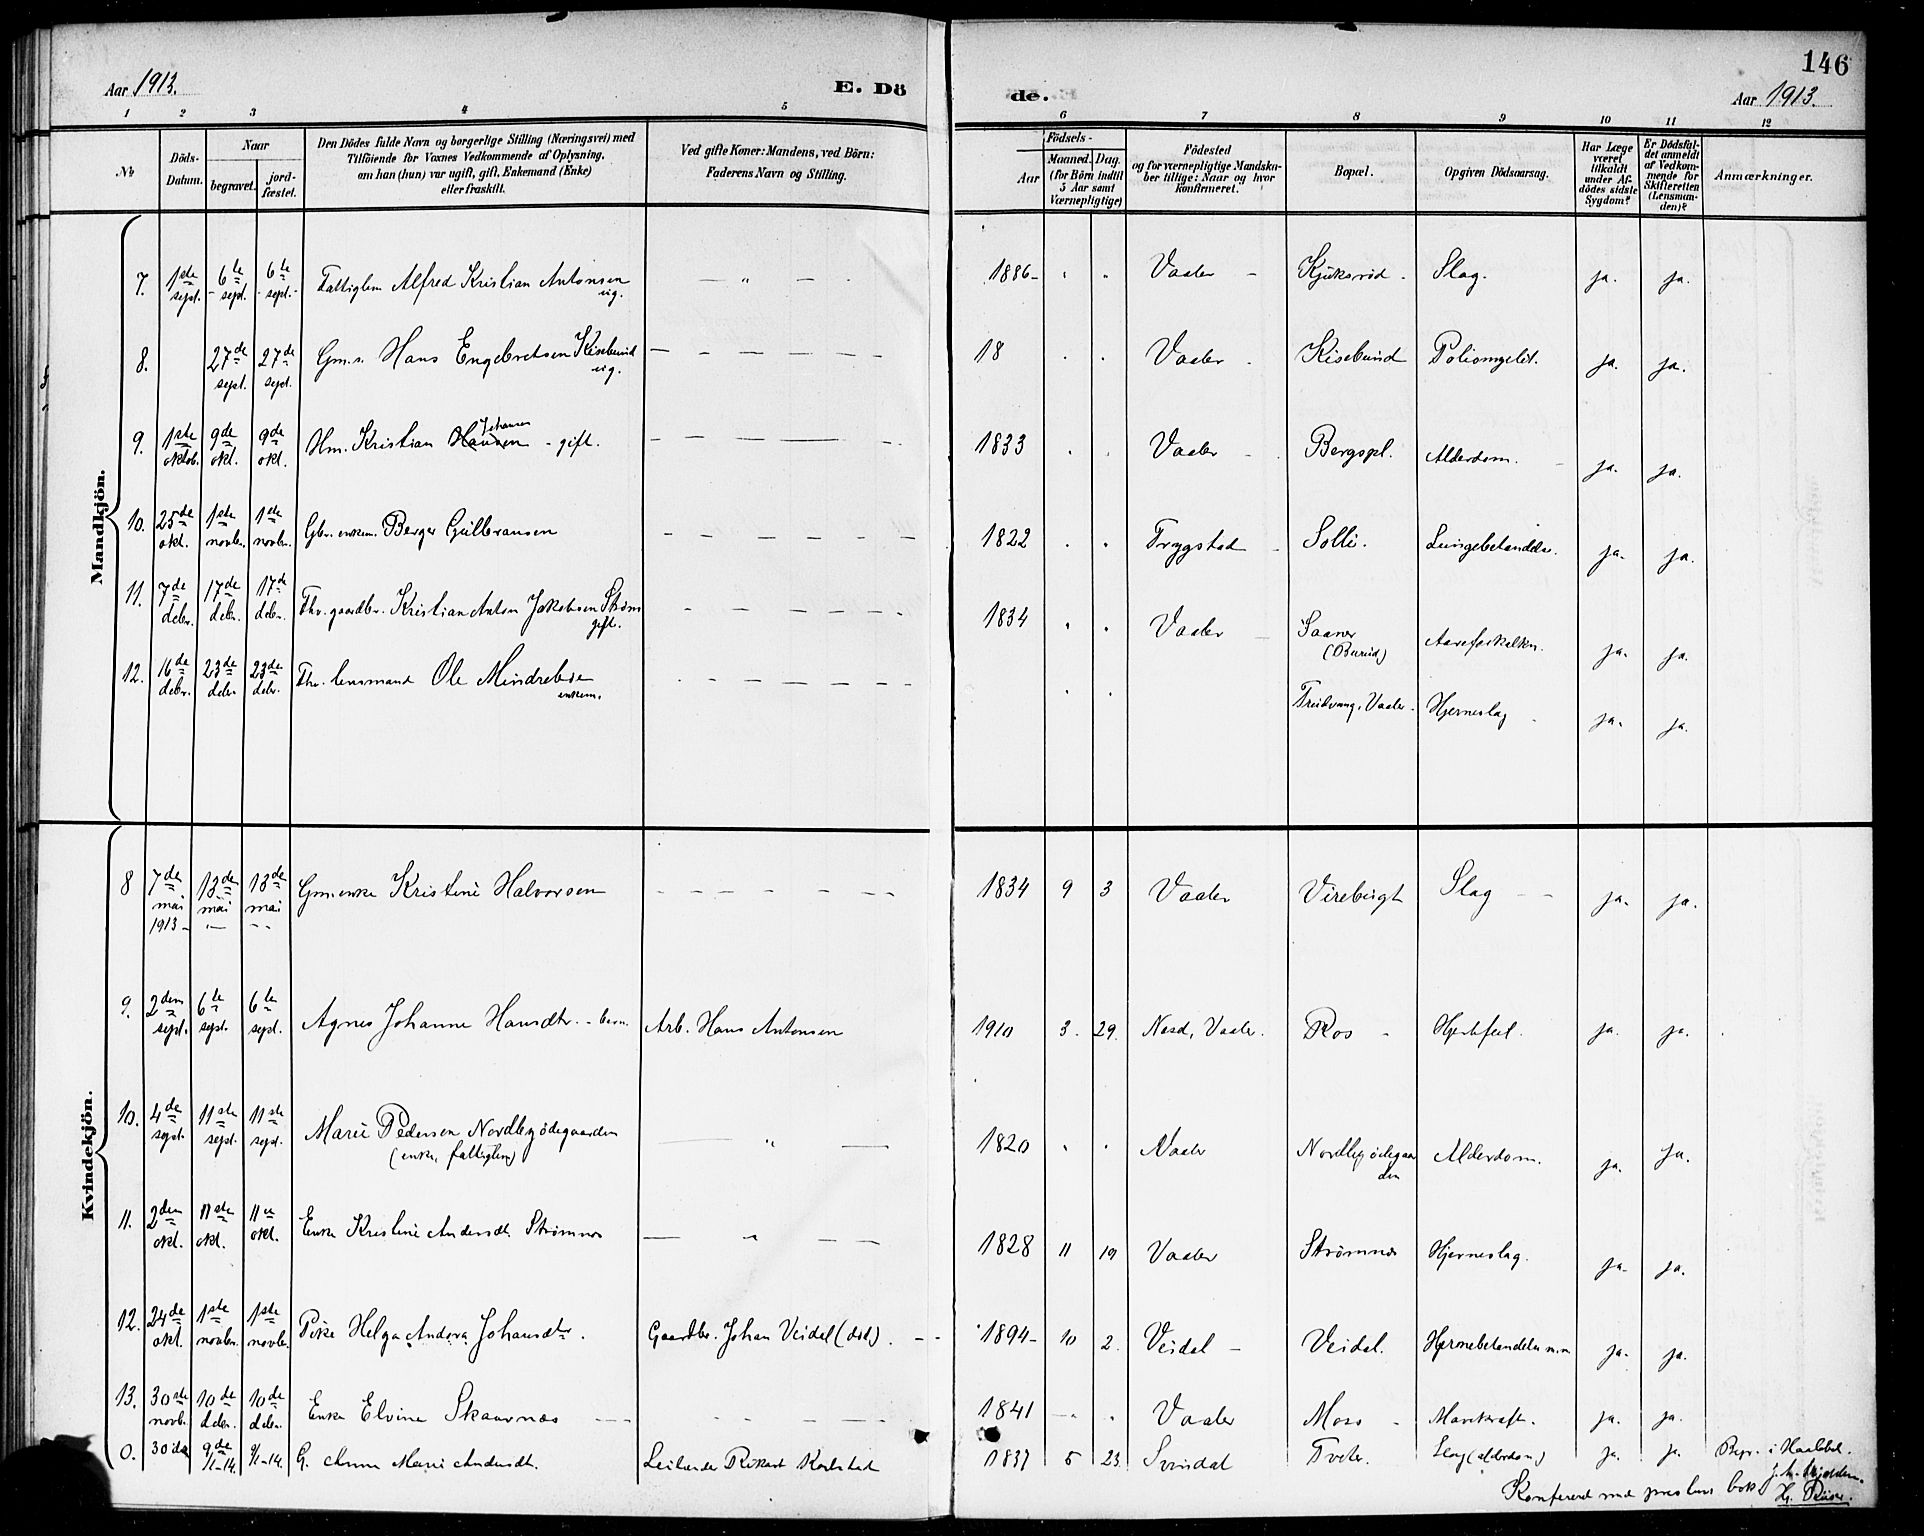 146
Aar 1913.
E. Dö
de.
Aar 1913.
1 2 3 4 5
6 7 8 9 10 11 12
No
Döds-
Datum.
Naar
begravet.
jord-
fæstet.
Den Dödes fulde Navn og borgerlige Stilling (Næringsvei) med
Tilföiende for Voxnes Vedkommende af Oplysning,
om han (hun) var ugift, gift, Enkemand (Enke)
eller fraskilt.
Ved gifte Koner: Mandens, ved Börn:
Faderens Navn og Stilling.
Födsels-
Aar
Maaned. Dag.
(for Börn indtil
5 Aar samt
Værnepligtige)
Födested
og for værnepligtige Mandska-
ber tillige: Naar og hvor
konfirmeret.
Bopæl.
Opgiven Dödsaarsag.
Har Læge
været
tilkaldt
under Af-
dödes sidste
Sygdom?
Er Dödsfal-
det anmeldt
af Vedkom-
mende for
Skifteretten
(Lensman-
den)?
Anmærkninger.
Mandkjön.
7. 1ste sept. 6te sept. 6te sept. Fattiglem Alfred Kristian Antonsen ug. 1886 Vaaler Kjuksrød Slag. ja. ja.
8. 27de sept. 27de sept. Gm.s. Hans Engebretsen Kisebund ug. 18 Vaaler Kisebund Poliomyelit. ja. ja.
9. 1ste oktob. 9de okt. 9de okt. Hm. Kristian Hansen Johansen - gift. 1833 Vaaler Bergspl. Alderdom. ja. ja.
10. 25de okt. 1ste novbr. 1ste novbr. Gbr. enkem. Berger Gulbransen 1822 Trygstad Solli. Lungebetændelse. ja. ja.
11. 7de debr. 17de debr. 17de debr. Fhv. gaardbr. Kristian Anton Jakobsen Strøm gift. 1834 Vaaler Saaner (Burud) Aareforkalkn. ja. ja.
12. 16de debr. 23de debr. 23de debr. Fhv. lensmand Ole Mindrebøe enkem. Vaaler. Hjerneslag ja. ja.
Kvindekjön.
8 7de mai 1913 13de mai 13de mai Gm. enke Kristine Halvorsen 1834 9 3 Vaaler Virebugt Slag ja. ja.
9. 2den sept. 6te sept. 6te sept. Agnes Johanne Hansdtr. - barn. Arb. Hans Antonsen 1910 3. 29. Vaaler. Ros Hjertefeil. ja. ja.
10. 4de sept. 11ste sept. 11ste sept. Marie Pedersen Nordbyødegaarden (enke, fattiglem) 1820 Vaaler Nordbyødegaarden Alderdom. ja. ja.
11. 2den okt. 11ste okt. 11te okt. Enke Kristine Andersdt. Strømnes 1828 11 19 Vaaler Strømnes Hjerneslag. ja. ja.
12. 24de okt. 1ste novbr. 1ste novbr. Pike Helga Andora Johansdtr. Gaardbr. Johan Veidal (død). 1894 10 2. Veidal Veidal. Hjernebetændelse m.m ja. ja.
13. 30te novb. 10de debr. 10de debr. Enke Elvine Skaarnæs 1841 Vaaler Moss Marekraft. ja. ja.
0. 30 9de/1-14. 9/1-14. G. Anna Marie Andersdt. Leilænder Rikard Karlstad 1837 5 23 Svindal Tveter. Slag (alderdom) ja. ja. Begr. i Haabøl.
Konfereret med prestens bok